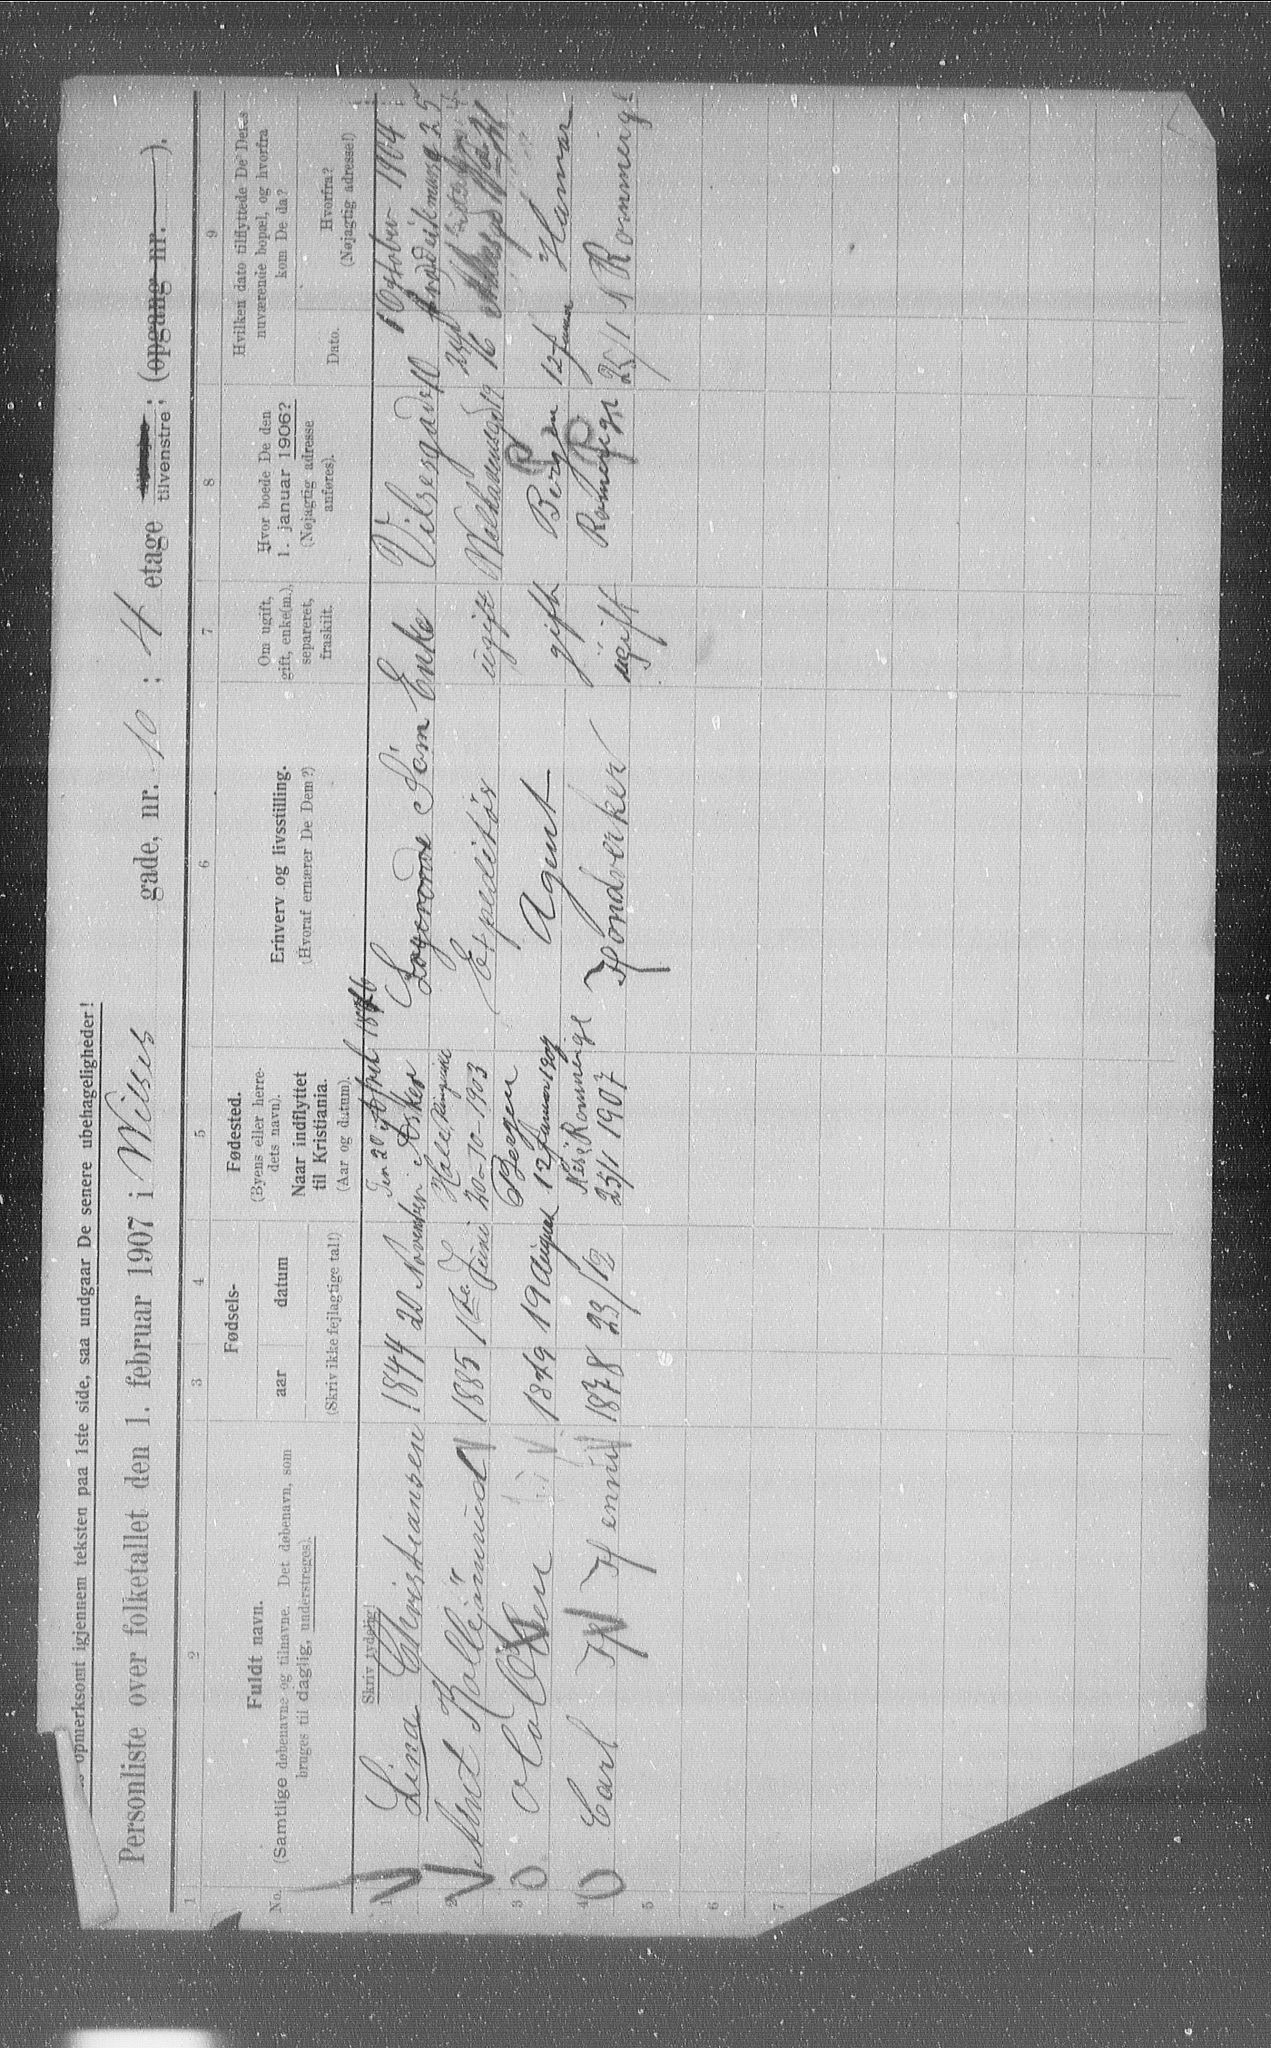 opmerksomt igjennem teksten paa 1ste side, saa undgaar De senere ubehageligheder!
Personliste over folketallet den 1. februar 1907 i Wilses gade, nr. 10 ; 4 etage tilvenstre; (opgang nr. ).
1 2 3 4 5 6 7 8 9
No.
Fuldt navn.
(Samtlige døbenavne og tilnavne. Det døbenavn, som
bruges til daglig, understreges).
Skriv tydelig!
Fødsels-
aar datum
(Skriv ikke fejlagtige tal!)
Fødested.
(Byens eller herre-
dets navn).
Naar indflyttet
til Kristiania.
(Aar og datum).
Erhverv og livsstilling.
(Hvoraf ernærer De Dem?)
Om ugift,
gift, enke(m.),
separeret,
fraskilt.
Hvor boede De den
1. januar 1906?
(Nøjagtig adresse
anføres).
Hvilken dato tilflyttede De Deres
nuværende bopæl, og hvorfra
kom De da?
Dato.
Hvorfra?
(Nøjagtig adresse!)
1 Lina Christiansen 1844 20 November Asker Søm Enke Vilsesgade 10 1 October 1904
2 Knut 1885 1ste Juni Hole, Ringerike 20-10-1903 Expeditør ugift 16
3 Ola Olsen 1879 19 August Bergen 12 Januar 1907 Agent gift Bergen 12 Januar Hamar
4 Carl 1878 23/12 Romerige 25/1 1907 Handverker ugift Romerige 25/1 Rommerige
5
6
7